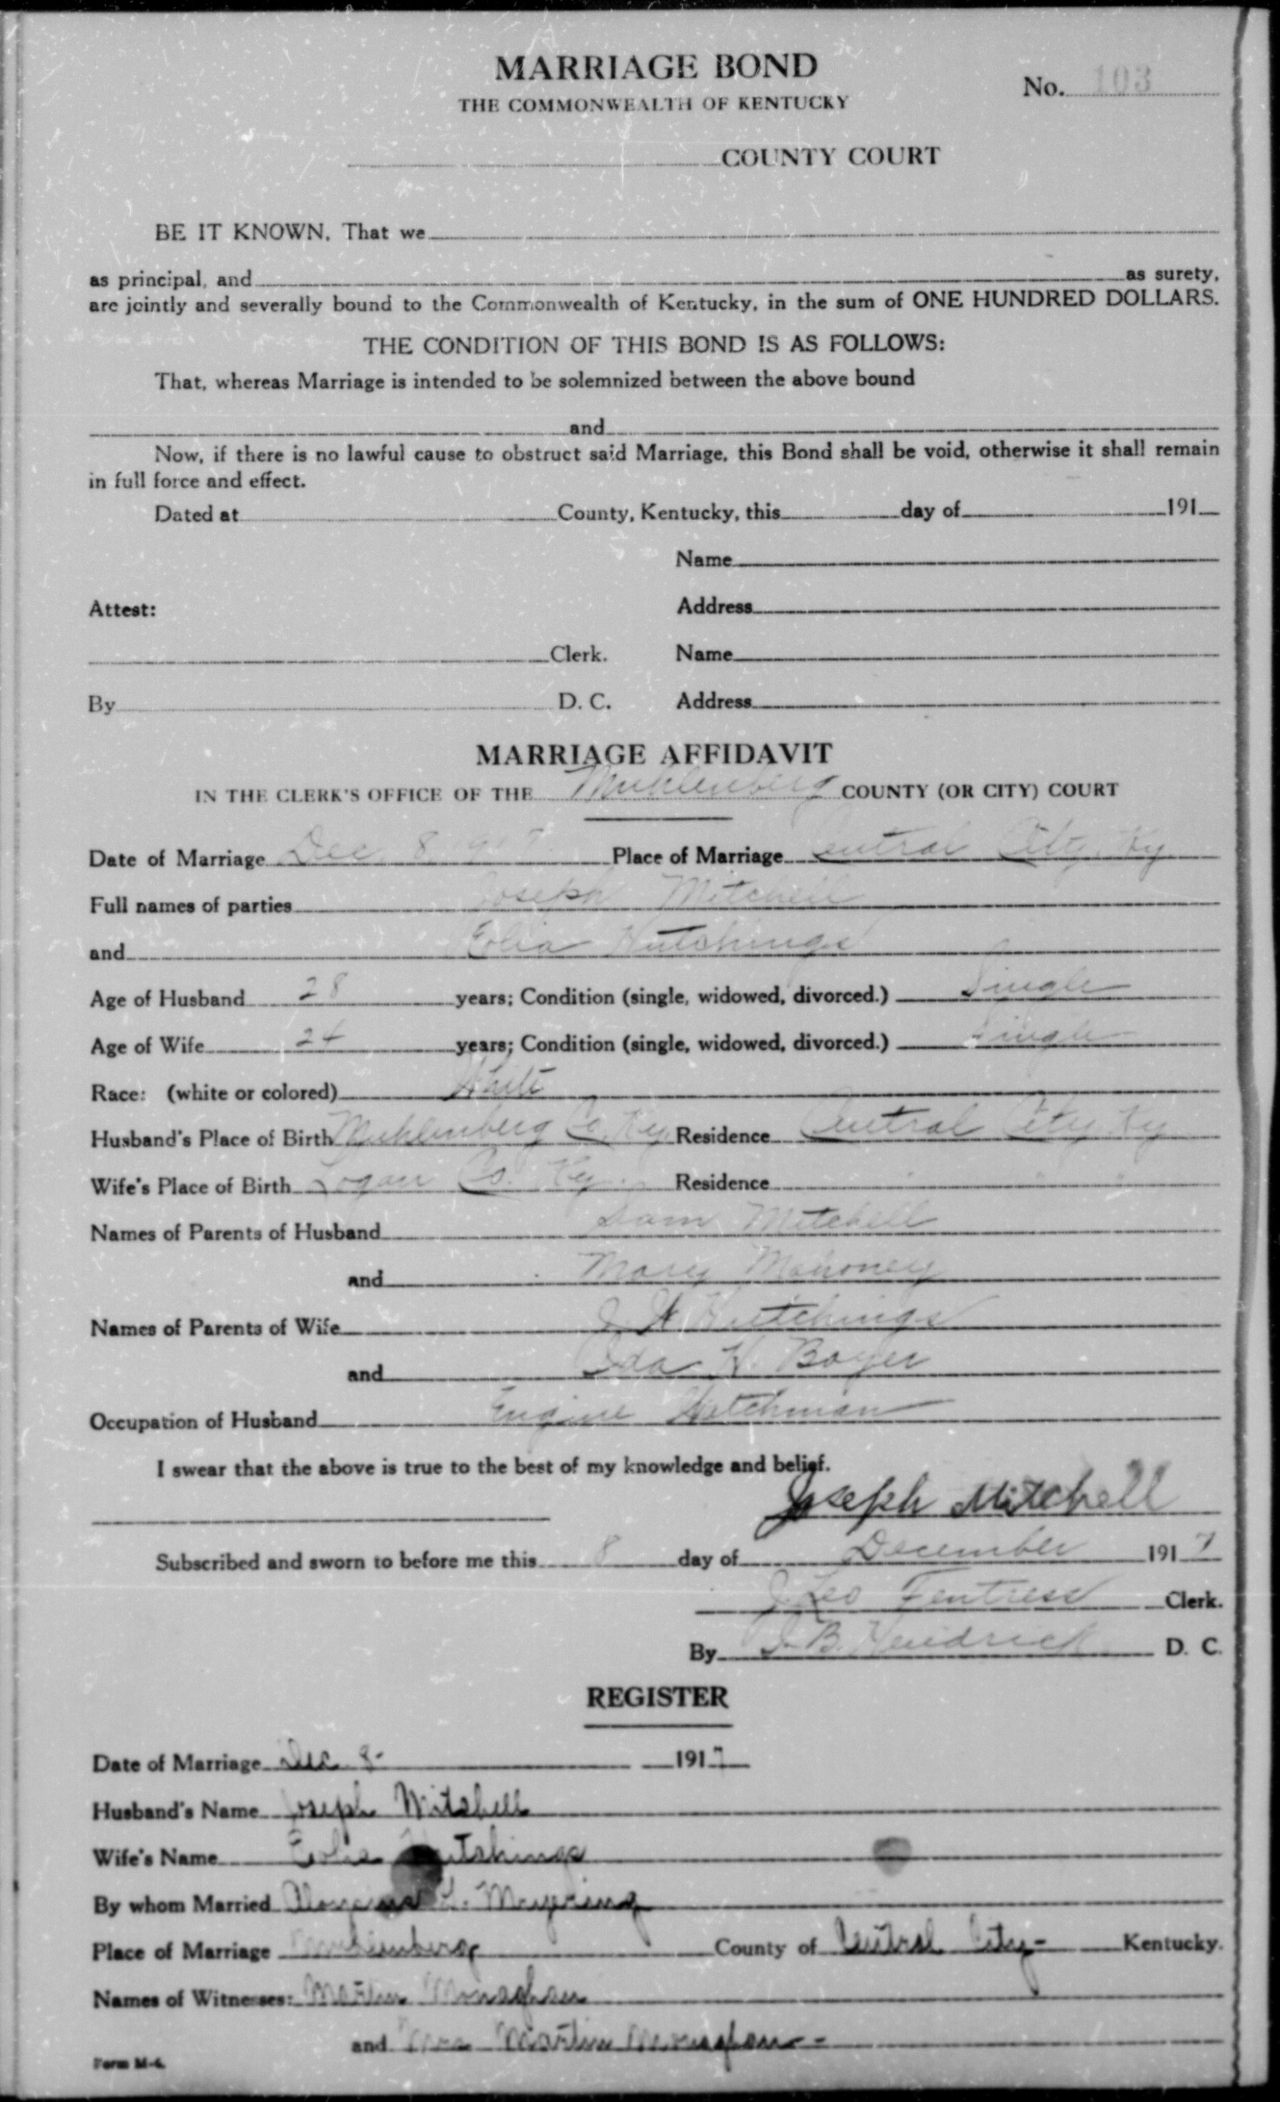 MARRIAGE BOND
No. 103
THE COMMONWEALTH OF KENTUCKY
COUNTY COURT
BE IT KNOWN, That we
as principal, and as surety,
are jointly and severally bound to the Commonwealth of Kentucky, in the sum of ONE HUNDRED DOLLARS.
THE CONDITION OF THIS BOND IS AS FOLLOWS:
That, whereas Marriage is intended to be solemnized between the above bound
and
Now, if there is no lawful cause to obstruct said Marriage, this Bond shall be void, otherwise it shall remain
in full force and effect.
Dated at County, Kentucky, this day of 191
Name
Attest: Address
Clerk. Name
By D. C. Address
MARRIAGE AFFIDAVIT
IN THE CLERK'S OFFICE OF THE Muhlenberg COUNTY (OR CITY) COURT
Date of Marriage Dec 8 917 Place of Marriage Central City Ky
Full names of parties Joseph Mitchell
and Eolia Hutchings
Age of Husband 28 years; Condition (single, widowed, divorced.) Single
Age of Wife 24 years; Condition (single, widowed, divorced.) Single
Race: (white or colored) White
Husband's Place of Birth Muhlenberg Co. Ky Residence Central City Ky
Wife's Place of Birth Logan Co. Ky. Residence " " "
Names of Parents of Husband Sam Mitchell
and Mary Mahoney
Names of Parents of Wife Hutchings
and Ida H. Boyer
Occupation of Husband Engine Watchman
I swear that the above is true to the best of my knowledge and belief.
Joseph Mitchell
Subscribed and sworn to before me this 8 day of December 1917
J Leo Fentress Clerk.
By J. B. Hendrick D. C.
REGISTER
Date of Marriage Dec 8- 1917
Husband's Name Joseph Mitchell
Wife's Name Eolia Hutchings
By whom Married Aloysius L.
Place of Marriage Muhlenberg County of Central City- Kentucky.
Names of Witnesses: Martin Monaghan
and Mrs Martin Monaghan -
Form M-4.